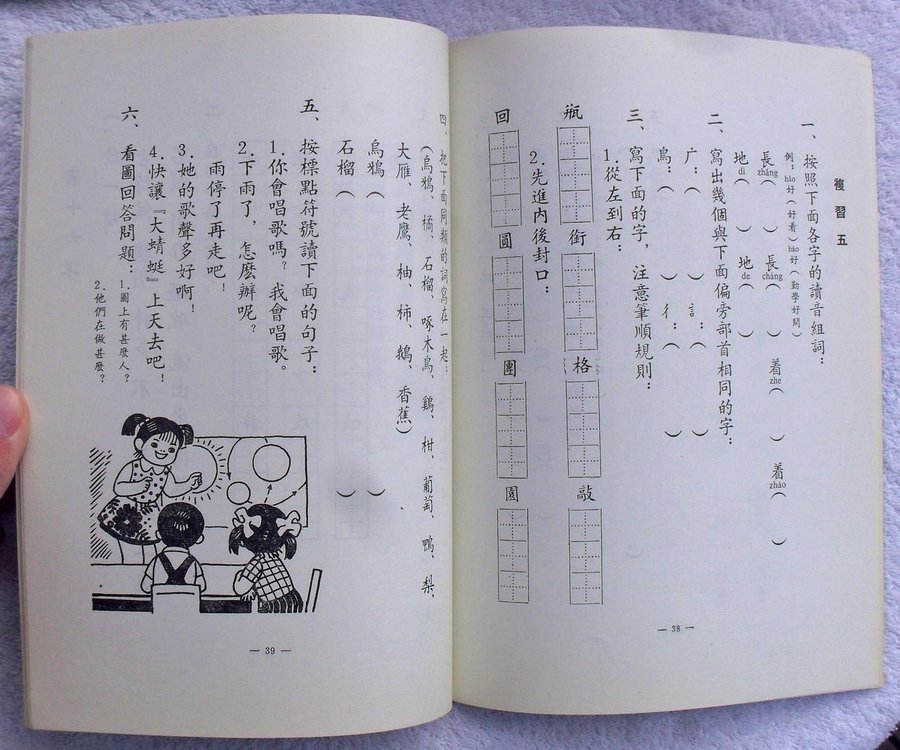 複習五
一、按照下面各字的讀音組詞：
例：hǎo好（好看）hào好（勤學好問）
長zhǎng（　）長cháng（　）着zhe（　）
地dì（　）地de（　）着zháo（　）
二、寫出幾個與下面偏旁部首相同的字：
广：（　）言：（　）
鳥：（　）彳：（　）
三、寫下面的字，注意筆順規則：
1.從左到右：
瓶 銜 格 敲
2.先進內後封口：
回 圓 團 園
— 38 —
四、把下面同類的詞寫在一起：
（烏鴉、橘、石榴、啄木鳥、雞、柑、葡萄、鴨、梨、
大雁、老鷹、柚、柿、鵝、香蕉）
烏鴉（　）
石榴（　）
五、按標點符號讀下面的句子：
1.你會唱歌嗎？我會唱歌。
2.下雨了，怎麼辦呢？
雨停了再走吧！
3.她的歌聲多好啊！
4.快讓『大蜻蜓』上天去吧！
六、看圖回答問題：
1.圖上有甚麼人？
2.他們在做甚麼？
— 39 —